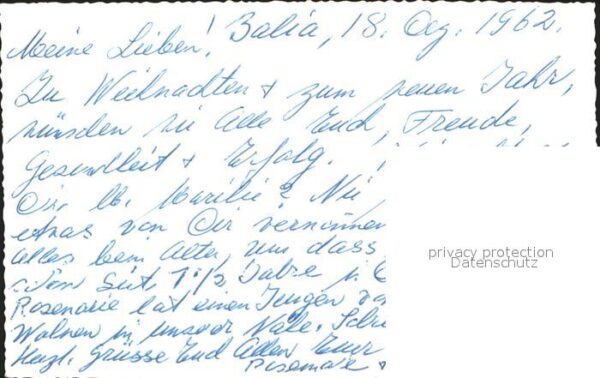 Meine Lieben! Bahia, 18. Dez. 1962.
Zu Weihnachten + zum neuen Jahr,
wünschen wir alle Euch, Freude,
Gesundheit + Erfolg.
Dir, lb. Marilie? Nie
etwas von Dir vernommen
alles beim Alten, nur dass
seit 1 1/2 Jahre
Rosemarie hat einen Jungen
Wohnen in unserer Nähe.
Herzl. Grüsse Euch Allen Eure
Rosemarie
privacy protection
Datenschutz